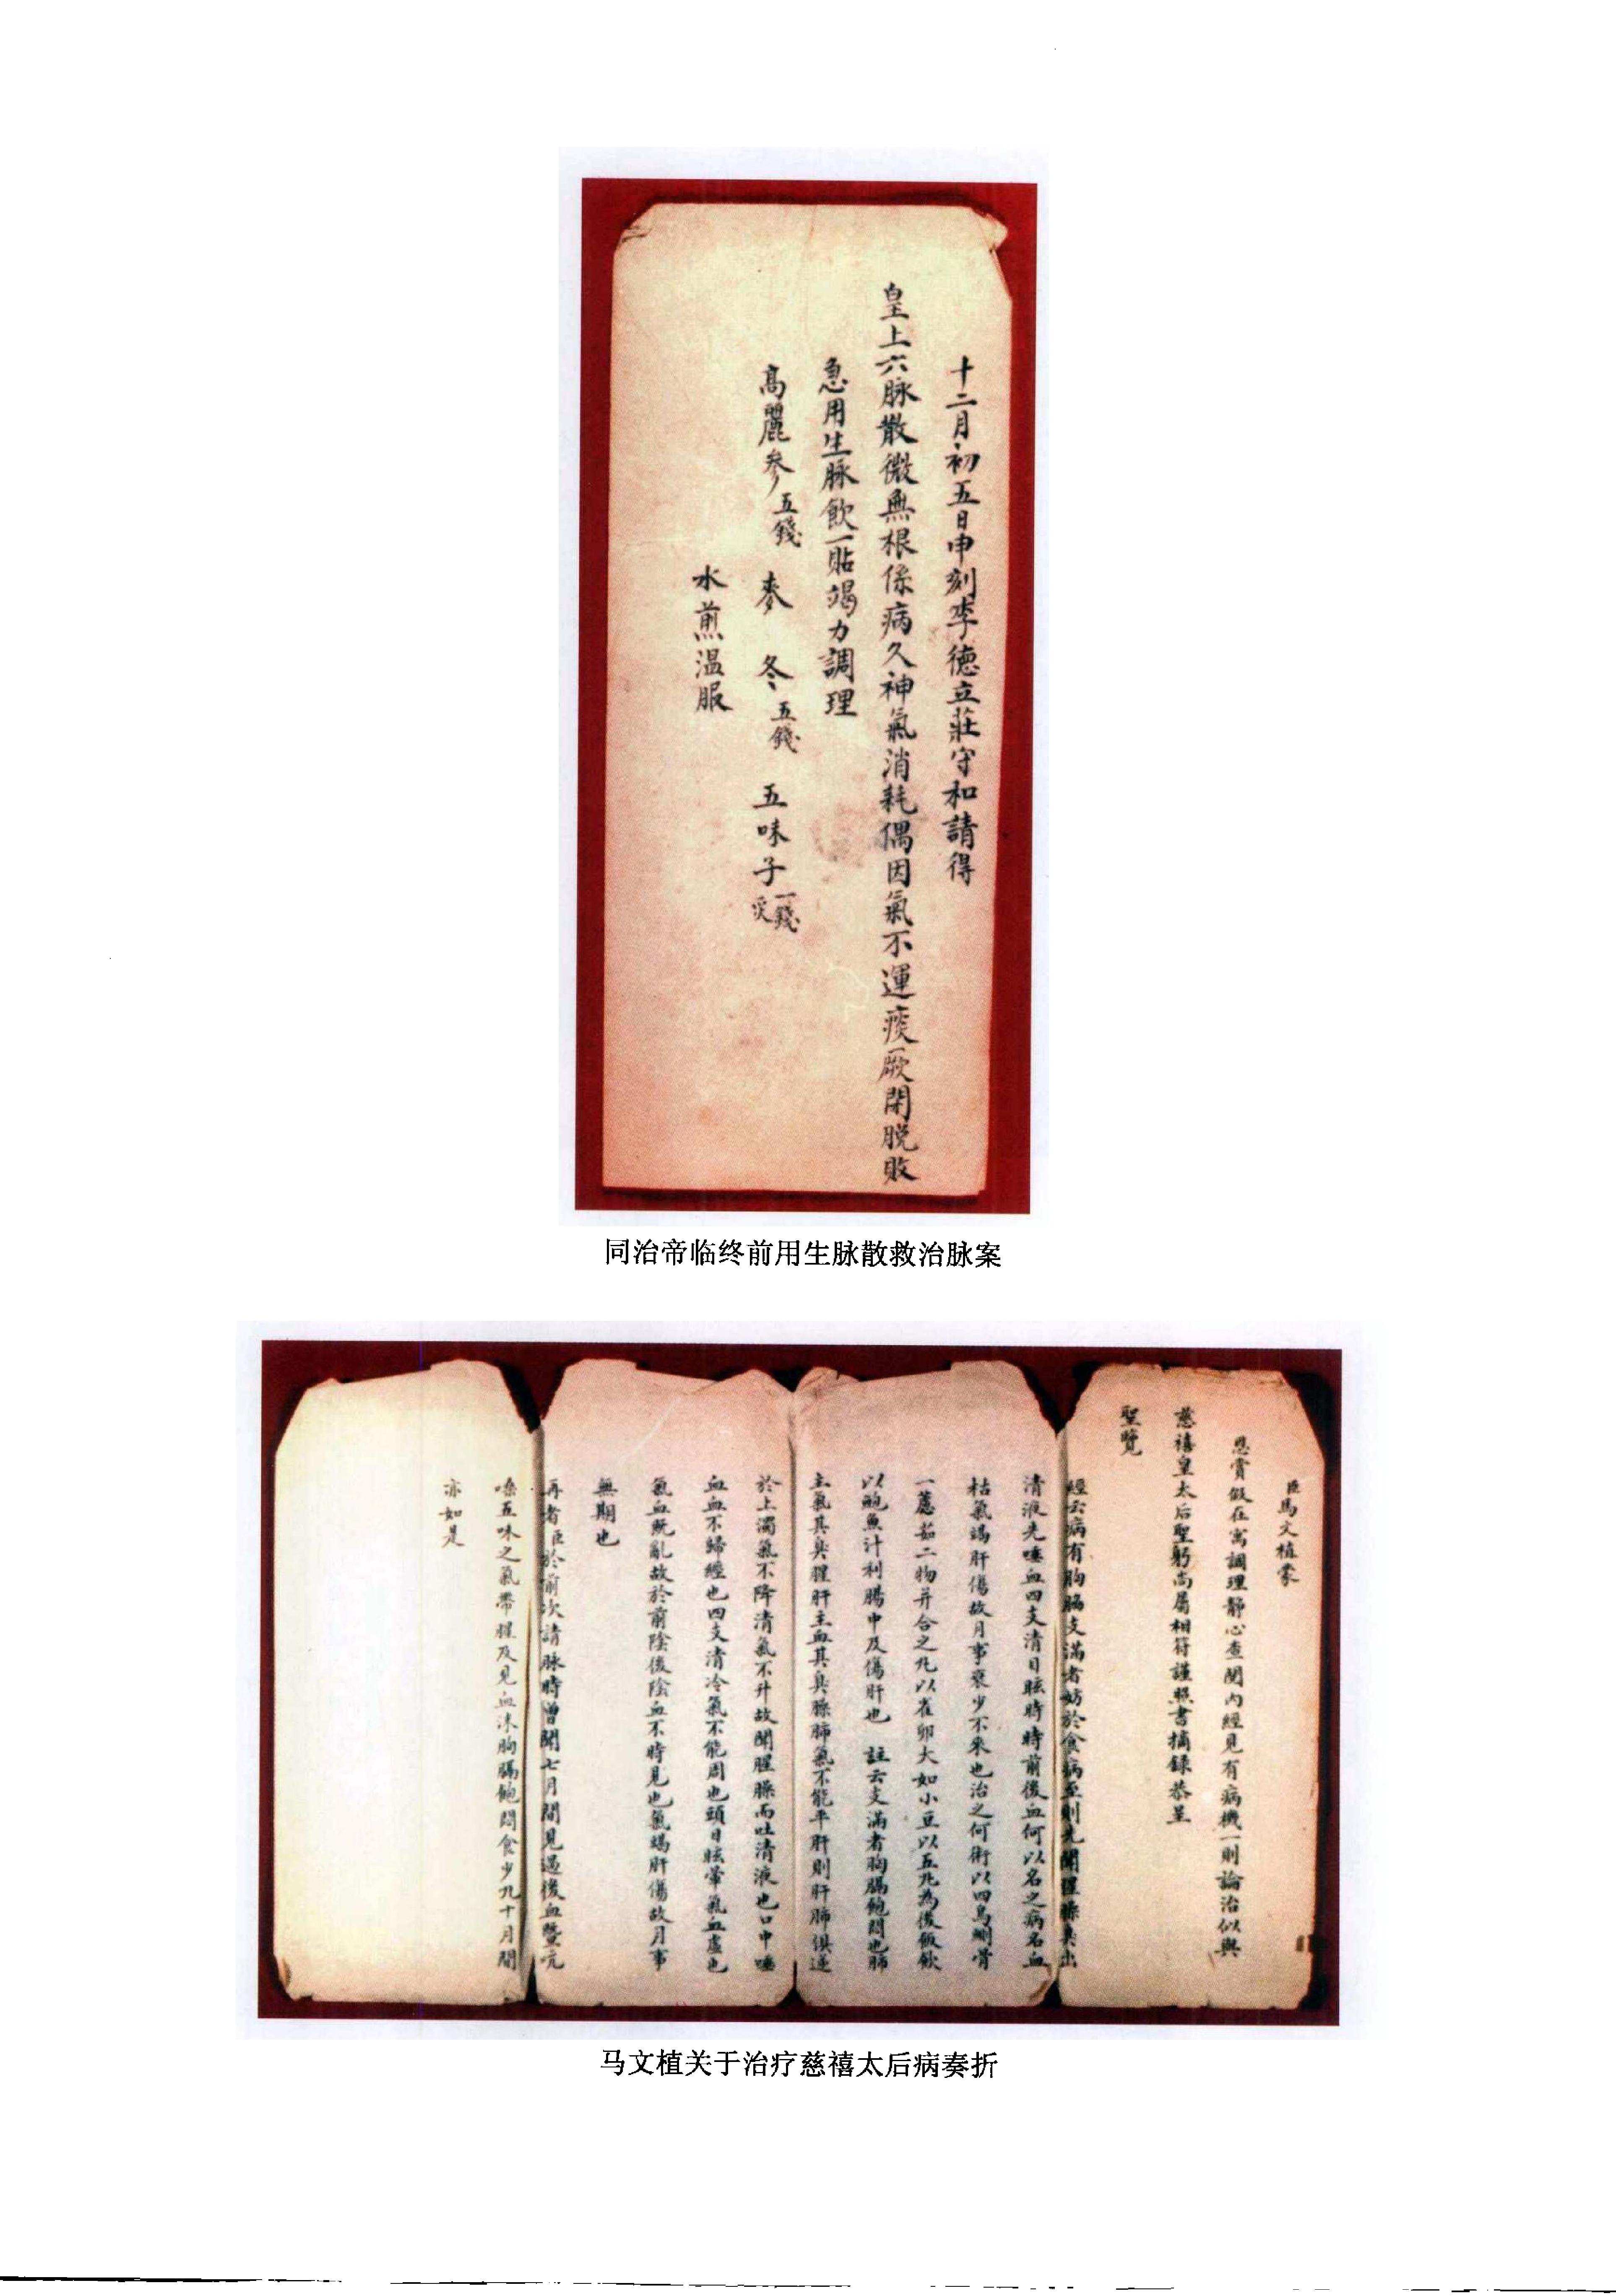 十二月初五日申刻李德立莊守和請得
皇上六脉散微無根係病久神氣消耗偶因氣不運痰厥閉脱敗
急用生脉飲一貼竭力調理
高麗參五錢 麥冬五錢 五味子一錢炙
水煎温服
同治帝临终前用生脉散救治脉案
臣馬文植蒙
恩賞假在寓調理靜心查閱内經見有病機一則論治似與
慈禧皇太后聖躬尚屬相符謹照書摘錄恭呈
聖覽
經云病有胸脇支滿者妨於食病至則先聞腥臊臭出
清液先唾血四支清目眩時時前後血何以名之病名血
枯氣竭肝傷故月事衰少不来也治之何術以四烏鰂骨
一藘茹二物并合之丸以雀卵大如小豆以五丸為後飯飲
以鮑魚汁利腸中及傷肝也 註云支滿者胸膈飽悶也肺
主氣其臭腥肝主血其臭臊肺氣不能平肝則肝肺俱逆
於上濁氣不降清氣不升故聞腥臊而吐清液也口中唾
血血不歸經也四支清冷氣不能周也頭目眩暈氣血虛也
氣血既亂故於前陰後陰血不時見也氣竭肝傷故月事
無期也
再者臣於前次請脉時曾聞七月間見過後血蟹吭
嗓五味之氣帶腥及見血沫胸膈飽悶食少九十月間
亦如是
马文植关于治疗慈禧太后病奏折